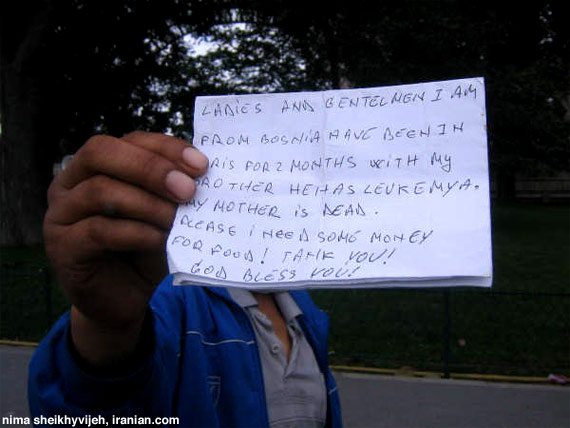 LADIES AND GENTELMEN I AM
FROM BOSNIA HAVE BEEN IN
RIS FOR 2 MONTHS WITH MY
BROTHER HE HAS LEUKEMYA.
MY MOTHER IS DEAD.
PLEASE I NEED SOME MONEY
FOR FOOD! TANK YOU!
GOD BLESS YOU!
nima sheikhyvijeh, iranian.com